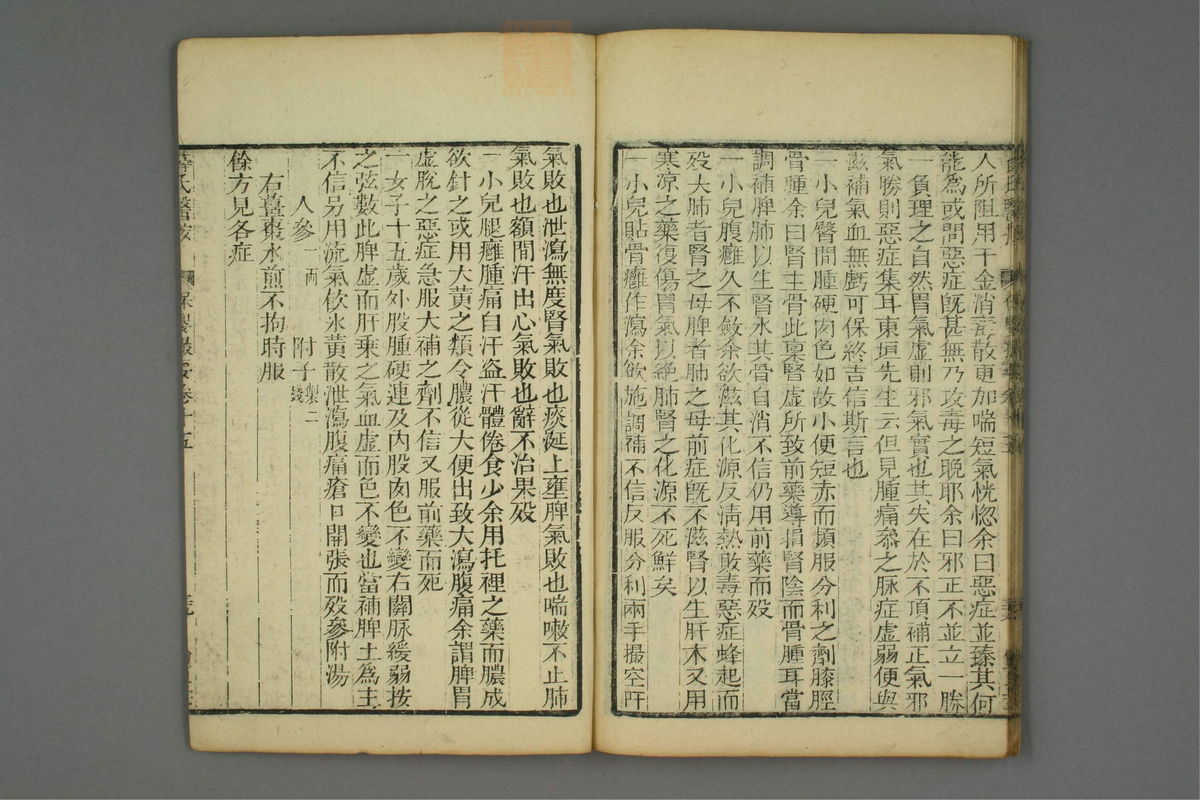 人所阻用千金消毒散更加喘短氣恍惚余曰惡症並臻其何
能爲或問惡症旣甚無乃攻毒之晚耶余曰邪正不並立一勝
一負理之自然胃氣虛則邪氣實也其失在於不預補正氣邪
氣勝則惡症集耳東垣先生云但見腫痛叅之脉症虛弱便與
滋補氣血無虧可保終吉信斯言也
一小兒臀間腫硬肉色如故小便短赤而頻服分利之劑膝脛
骨腫余曰腎主骨此稟腎虛所致前藥導損腎陰而骨腫耳當
調補脾肺以生腎水其骨自消不信仍用前藥而歿
一小兒腹癰久不斂余欲滋其化源反淸熱敗毒惡症蜂起而
歿大肺者腎之母脾者肺之母前症旣不滋腎以生肝木又用
寒凉之藥復傷胃氣以絶肺腎之化源不死鮮矣
一小兒貼骨癰作瀉余欲施調補不信反服分利兩手撮空
氣敗也泄瀉無度腎氣敗也痰涎上壅脾氣敗也喘嗽不止肺
氣敗也額間汗出心氣敗也辭不治果歿
一小兒腿癰腫痛自汗盗汗體倦食少余用托裡之藥而膿成
欲針之或用大黃之類令膿從大便出致大瀉腹痛余謂脾胃
虛脫之惡症急服大補之劑不信又服前藥而死
一女子十五歲外股腫硬連及內股肉色不變右關脉緩弱按
之弦數此脾虛而肝乗之氣血虛而色不變也當補脾土爲主
不信另用流氣飮冰黃散泄瀉腹痛瘡口開張而歿參附湯
人參一兩 附子製二錢
右薑棗水煎不拘時服
餘方見各症
薛氏醫按 保嬰撮要卷十五